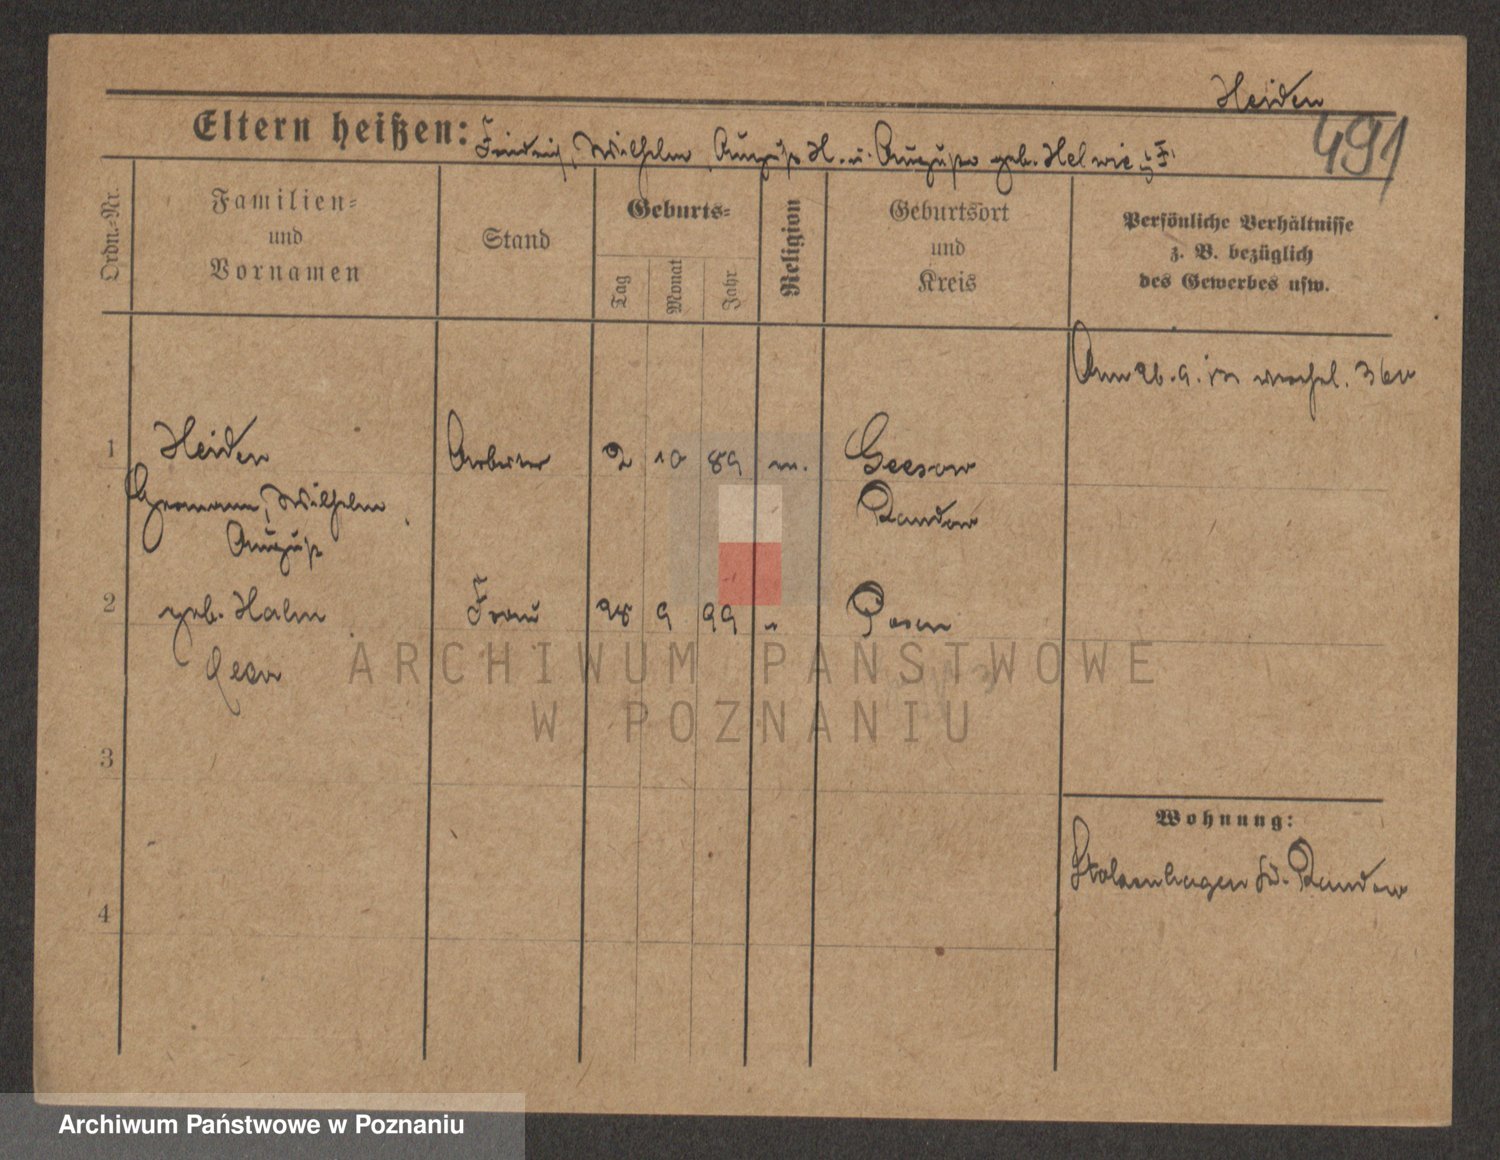 Heiden
491
Eltern heißen: Friedrich, Wilhelm, August H. u. Auguste geb. Helwig
Ordn.-Nr.
Familien-
und
Vornamen
Stand
Geburts-
Tag
Monat
Jahr
Religion
Geburtsort
und
Kreis
Persönliche Verhältnisse
z. B. bezüglich
des Gewerbes usw.
Am 26. 9.
1 Heiden Arbeiter 2 10 89 m. Geesow
Hermann, Wilhelm Randow
August
2 geb. Halm Frau 28 9 99 " Posen
3
4
Wohnung:
Stolzenhagen Kr. Randow
ARCHIWUM PAŃSTWOWE
W POZNANIU
Archiwum Państwowe w Poznaniu